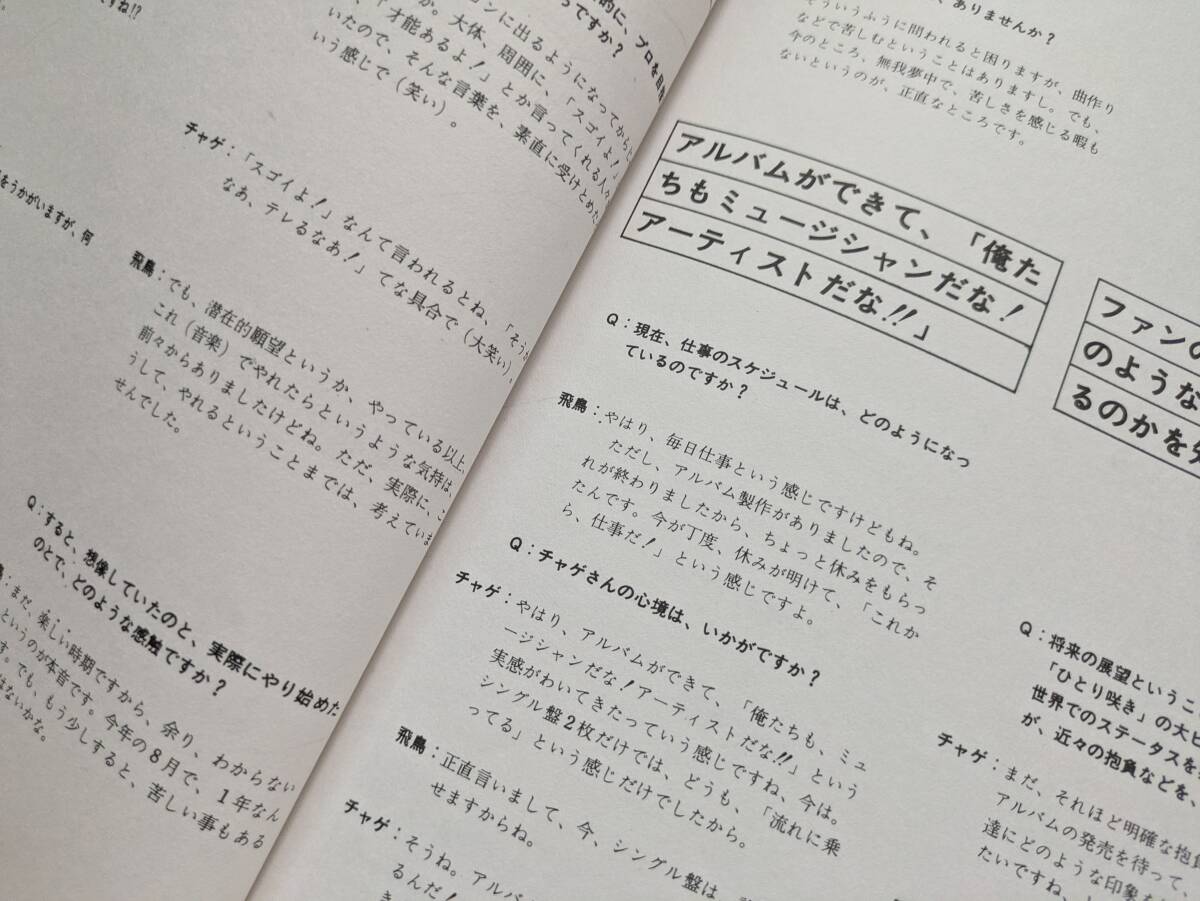 すね!?
的に、プロを目
すか？
ョンに出るようになってから
か。大体、周囲に、「スゴイよ！」
「才能あるよ！」とか言ってくれる人々
いたので、そんな言葉を、素直に受けとめた
いう感じで（笑い）。
チャゲ：「スゴイよ！」なんて言われるとね、「そう
なあ、テレるなあ！」てな具合で（大笑い）。
をうかがいますが、何
飛鳥：でも、潜在的願望というか、やっている以上、
これ（音楽）でやれたらというような気持は、
前々からありましたけどね。ただ、実際に、こ
うして、やれるということまでは、考えていま
せんでした。
Q：すると、想像していたのと、実際にやり始めた
のとで、どのような感触ですか？
鳥：まだ、楽しい時期ですから、余り、わからない
というのが本音です。今年の8月で、1年なん
す。でも、もう少しすると、苦しい事もある
はないかな。
、ありませんか？
そういうふうに問われると困りますが、曲作り
などで苦しむということはありますし。でも、
今のところ、無我夢中で、苦しさを感じる暇も
ないというのが、正直なところです。
アルバムができて、「俺た
ちもミュージシャンだな！
アーティストだな!!」
Q：現在、仕事のスケジュールは、どのようになっ
ているのですか？
飛鳥：やはり、毎日仕事という感じですけどもね。
ただし、アルバム製作がありましたので、そ
れが終わりましたから、ちょっと休みをもらっ
たんです。今が丁度、休みが明けて、「これか
ら、仕事だ！」という感じですよ。
Q：チャゲさんの心境は、いかがですか？
チャゲ：やはり、アルバムができて、「俺たちも、ミュ
ージシャンだな！アーティストだな!!」という
実感がわいてきたっていう感じですね、今は。
シングル盤2枚だけでは、どうも、「流れに乗
ってる」という感じだけでしたから。
飛鳥：正直言いまして、今、シングル盤は、
せますからね。
チャゲ：そうね。アルバ
るんだ！
き
ファンの
のような
るのかを
Q：将来の展望というこ
「ひとり咲き」の大ヒ
世界でのステータスを
が、近々の抱負などを、
チャゲ：まだ、それほど明確な抱負
アルバムの発売を待って、
達にどのような印象を
たいですね、